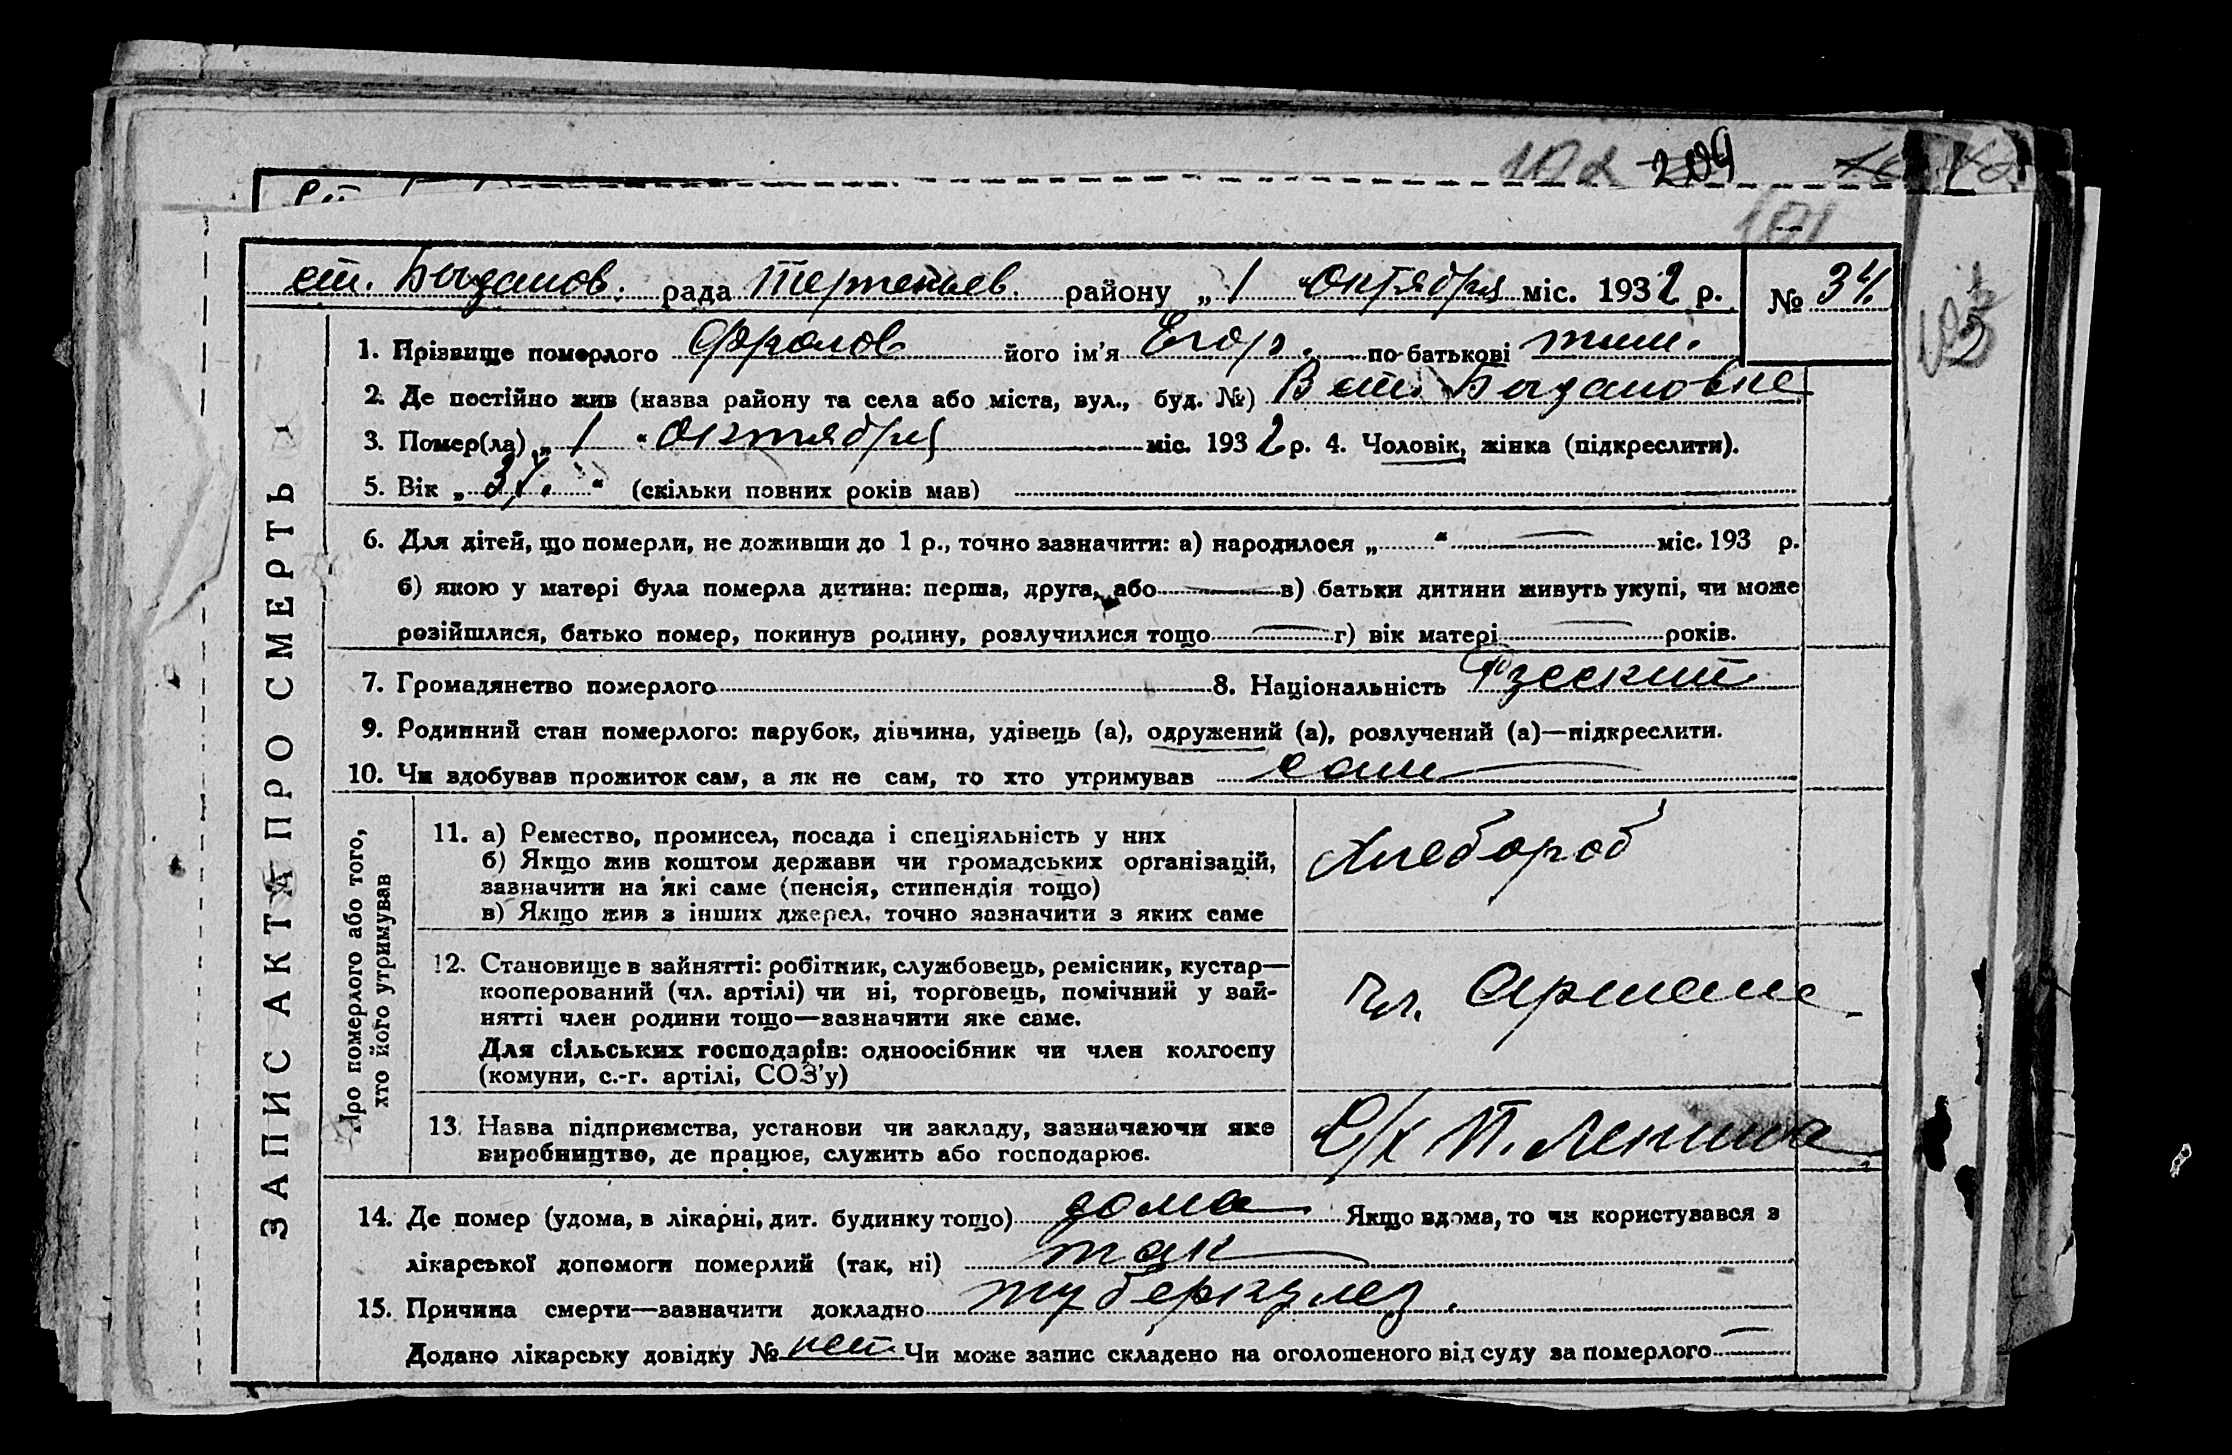 102 209
101
ст. Богданов. рада Терпеньев. району „1 Октября міс. 1932 р. № 34.
103
1. Прізвище померлого Фролов його ім’я Егор. по-батькові тим.
2. Де постійно жив (назва району та села або міста, вул., буд. №) В ст. Богдановке
3. Помер(ла) „1“ Октября міс. 1932 р. 4. Чоловік, жінка (підкреслити).
5. Вік „ “ (скільки повних років мав)
6. Для дітей, що померли, не доживши до 1 р., точно зазначити: а) народилося „ “ — міс. 193 р.
б) якою у матері була померла дитина: перша, друга, або — в) батьки дитини живуть укупі, чи може
розійшлися, батько помер, покинув родину, розлучилися тощо — г) вік матері — років.
7. Громадянство померлого 8. Національність Русский
9. Родинний стан померлого: парубок, дівчина, удівець (а), одружений (а), розлучений (а)—підкреслити.
10. Чи здобував прожиток сам, а як не сам, то хто утримував сам
ЗАПИС АКТА ПРО СМЕРТЬ
Про померлого або того,
хто його утримував
11. а) Ремество, промисел, посада і спеціяльність у них
б) Якщо жив коштом держави чи громадських організацій,
зазначити на які саме (пенсія, стипендія тощо)
в) Якщо жив з інших джерел, точно зазначити з яких саме
Хлебороб
12. Становище в зайнятті: робітник, службовець, ремісник, кустар—
кооперований (чл. артілі) чи ні, торговець, помічний у зай-
нятті член родини тощо—зазначити яке саме.
Для сільських господарів: одноосібник чи член колгоспу
(комуни, с.-г. артілі, СОЗ’у)
чл. Артели
13. Назва підприємства, установи чи закладу, зазначаючи яке
виробництво, де працює, служить або господарює.
С/х И. Ленина
14. Де помер (удома, в лікарні, дит. будинку тощо) дома Якщо вдома, то чи користувався з
лікарської допомоги померлий (так, ні) так
15. Причина смерти—зазначити докладно туберкулез.
Додано лікарську довідку № нет. Чи може запис складено на оголошеного від суду за померлого —